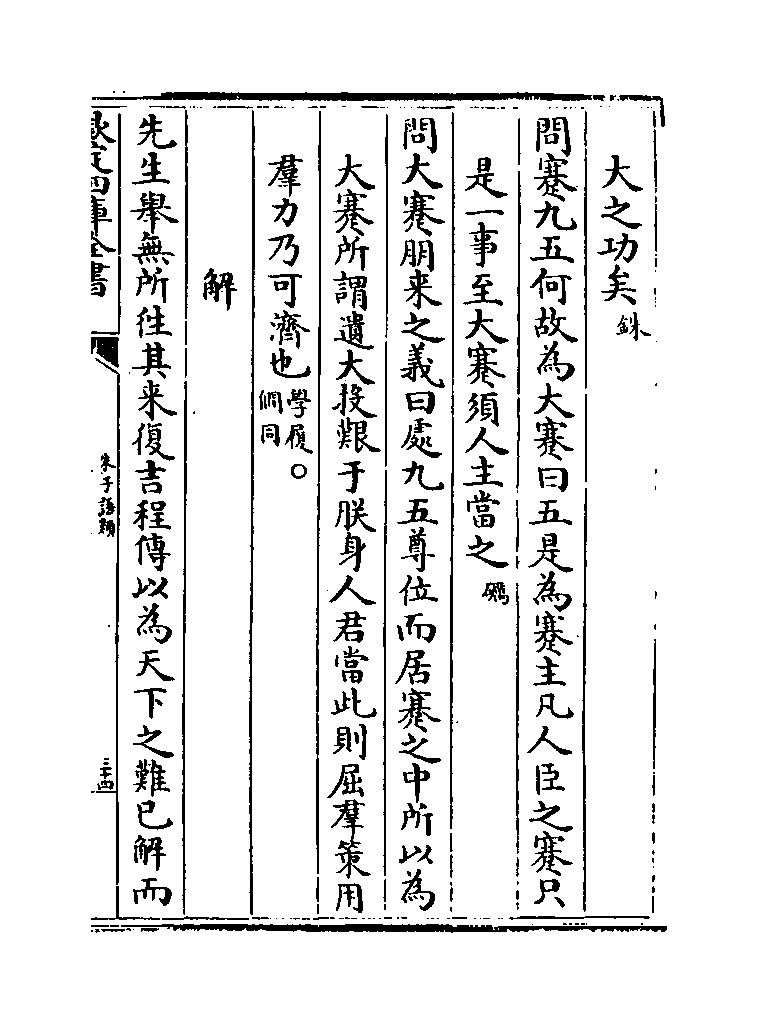 大之功矣銖
問蹇九五何故為大蹇曰五是為蹇主凡人臣之蹇只
是一事至大蹇須人主當之礪
問大蹇朋来之義曰處九五尊位而居蹇之中所以為
大蹇所謂遺大投艱于朕身人君當此則屈羣策用
羣力乃可濟也學履僩同○
解
先生舉無所徃其来復吉程傳以為天下之難已解而
欽定四庫全書
朱子語類
三十四